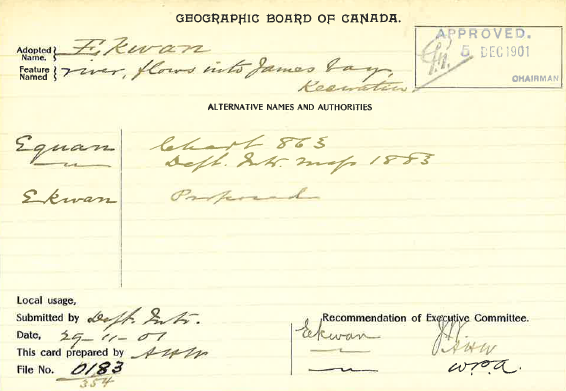 GEOGRAPHIC BOARD OF CANADA.
Adopted Name. Ekwan
Feature Named river, flows into James bay,
Keewatin
APPROVED.
5 DEC 1901
CHAIRMAN
ALTERNATIVE NAMES AND AUTHORITIES
Equan Chart 863
" Dept. Intr. map 1883
Ekwan Proposed
Local usage,
Submitted by Dept. Intr.
Date, 29-11-01
This card prepared by AHW
File No. 0183
354
Recommendation of Executive Committee.
Ekwan
AHW
W.P.A.